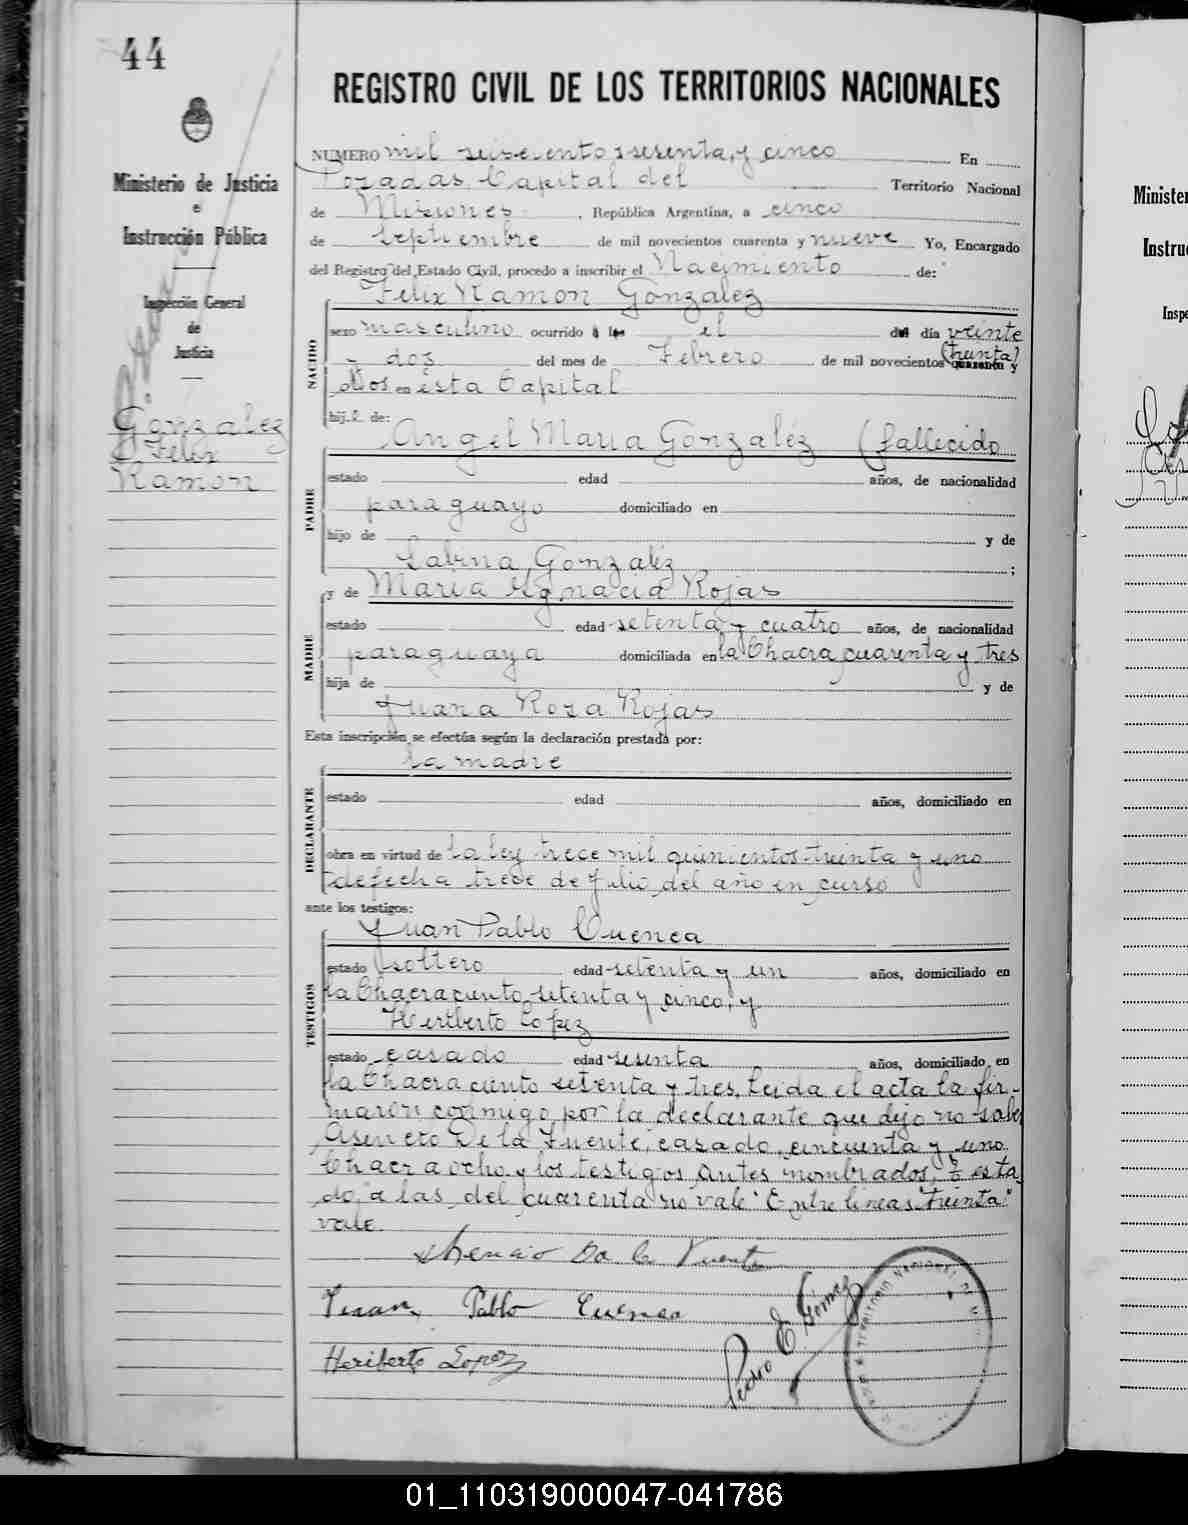 44
REGISTRO CIVIL DE LOS TERRITORIOS NACIONALES
Ministerio de Justicia
e
Instrucción Pública
Inspección General
de
Justicia
Gonzalez
Felix
Ramon
NUMERO mil seiscientos sesenta y cinco En
Posadas, Capital del Territorio Nacional
de Misiones, República Argentina, a cinco
de Septiembre de mil novecientos cuarenta y nueve Yo, Encargado
del Registro del Estado Civil, procedo a inscribir el Nacimiento de:
NACIDO
Felix Ramon Gonzalez
sexo masculino ocurrido a las el del día veinte
y dos del mes de Febrero de mil novecientos (treinta) cuarenta y
dos en ésta Capital
hij o de:
PADRE
Angel Maria Gonzalez (fallecido
estado edad años, de nacionalidad
paraguayo domiciliado en
hijo de y de
Sabina Gonzalez ;
MADRE
y de Maria Ygnacia Rojas
estado edad setenta y cuatro años, de nacionalidad
paraguaya domiciliada en la Chacra cuarenta y tres
hija de y de
Juana Rosa Rojas
Esta inscripción se efectúa según la declaración prestada por:
DECLARANTE
la madre
estado edad años, domiciliado en
obra en virtud de la ley trece mil quinientos treinta y uno
de fecha trece de Julio del año en curso
ante los testigos:
TESTIGOS
Juan Pablo Cuenca
estado soltero edad setenta y un años, domiciliado en
la Chacra ciento setenta y cinco, y
Heriberto Lopez
estado casado edad sesenta años, domiciliado en
la Chacra ciento setenta y tres. Leida el acta la fir-
maron conmigo por la declarante que dijo no saber
Asencio De la Fuente, casado, cincuenta y uno
Chacra ocho y los testigos antes nombrados, esta
do, a las, del cuarenta no vale. Entre lineas "treinta"
vale.
Asencio De la Fuente
Juan Pablo Cuenca
Heriberto Lopez
Pedro E. Gómez
Minister
Instruc
Inspe
01_110319000047-041786